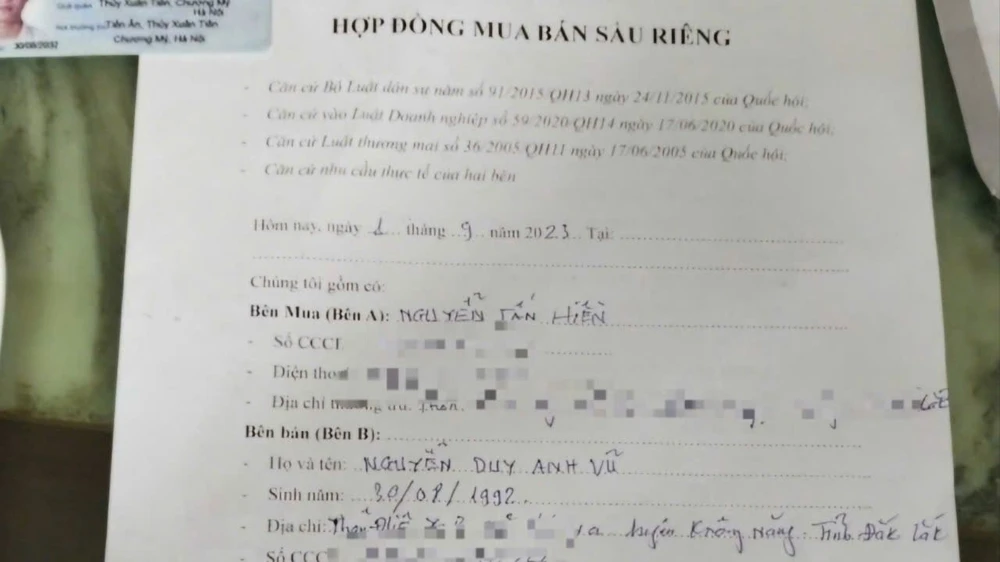 Thủy Xuân Tiên, Chương Mỹ
Hà Nội
Tiến Ân, Thủy Xuân Tiên
Chương Mỹ, Hà Nội
30/08/2032
HỢP ĐỒNG MUA BÁN SẦU RIÊNG
- Căn cứ Bộ Luật dân sự năm số 91/2015/QH13 ngày 24/11/2015 của Quốc hội;
- Căn cứ vào Luật Doanh nghiệp số 59/2020/QH14 ngày 17/06/2020 của Quốc hội;
- Căn cứ Luật thương mại số 36/2005/QH11 ngày 17/06/2005 của Quốc hội;
- Căn cứ nhu cầu thực tế của hai bên
Hôm nay, ngày 1 tháng 9 năm 2023 Tại:
Chúng tôi gồm có:
Bên Mua (Bên A): NGUYỄN TẤN HIỀN
- Số CCC
- Điện tho
- Địa chỉ
Bên bán (Bên B):
- Họ và tên: NGUYỄN DUY ANH VŨ
- Sinh năm: 30/08/1992
- Địa chỉ: huyện Krông Năng Tỉnh Đắk Lắk
- Số CCC